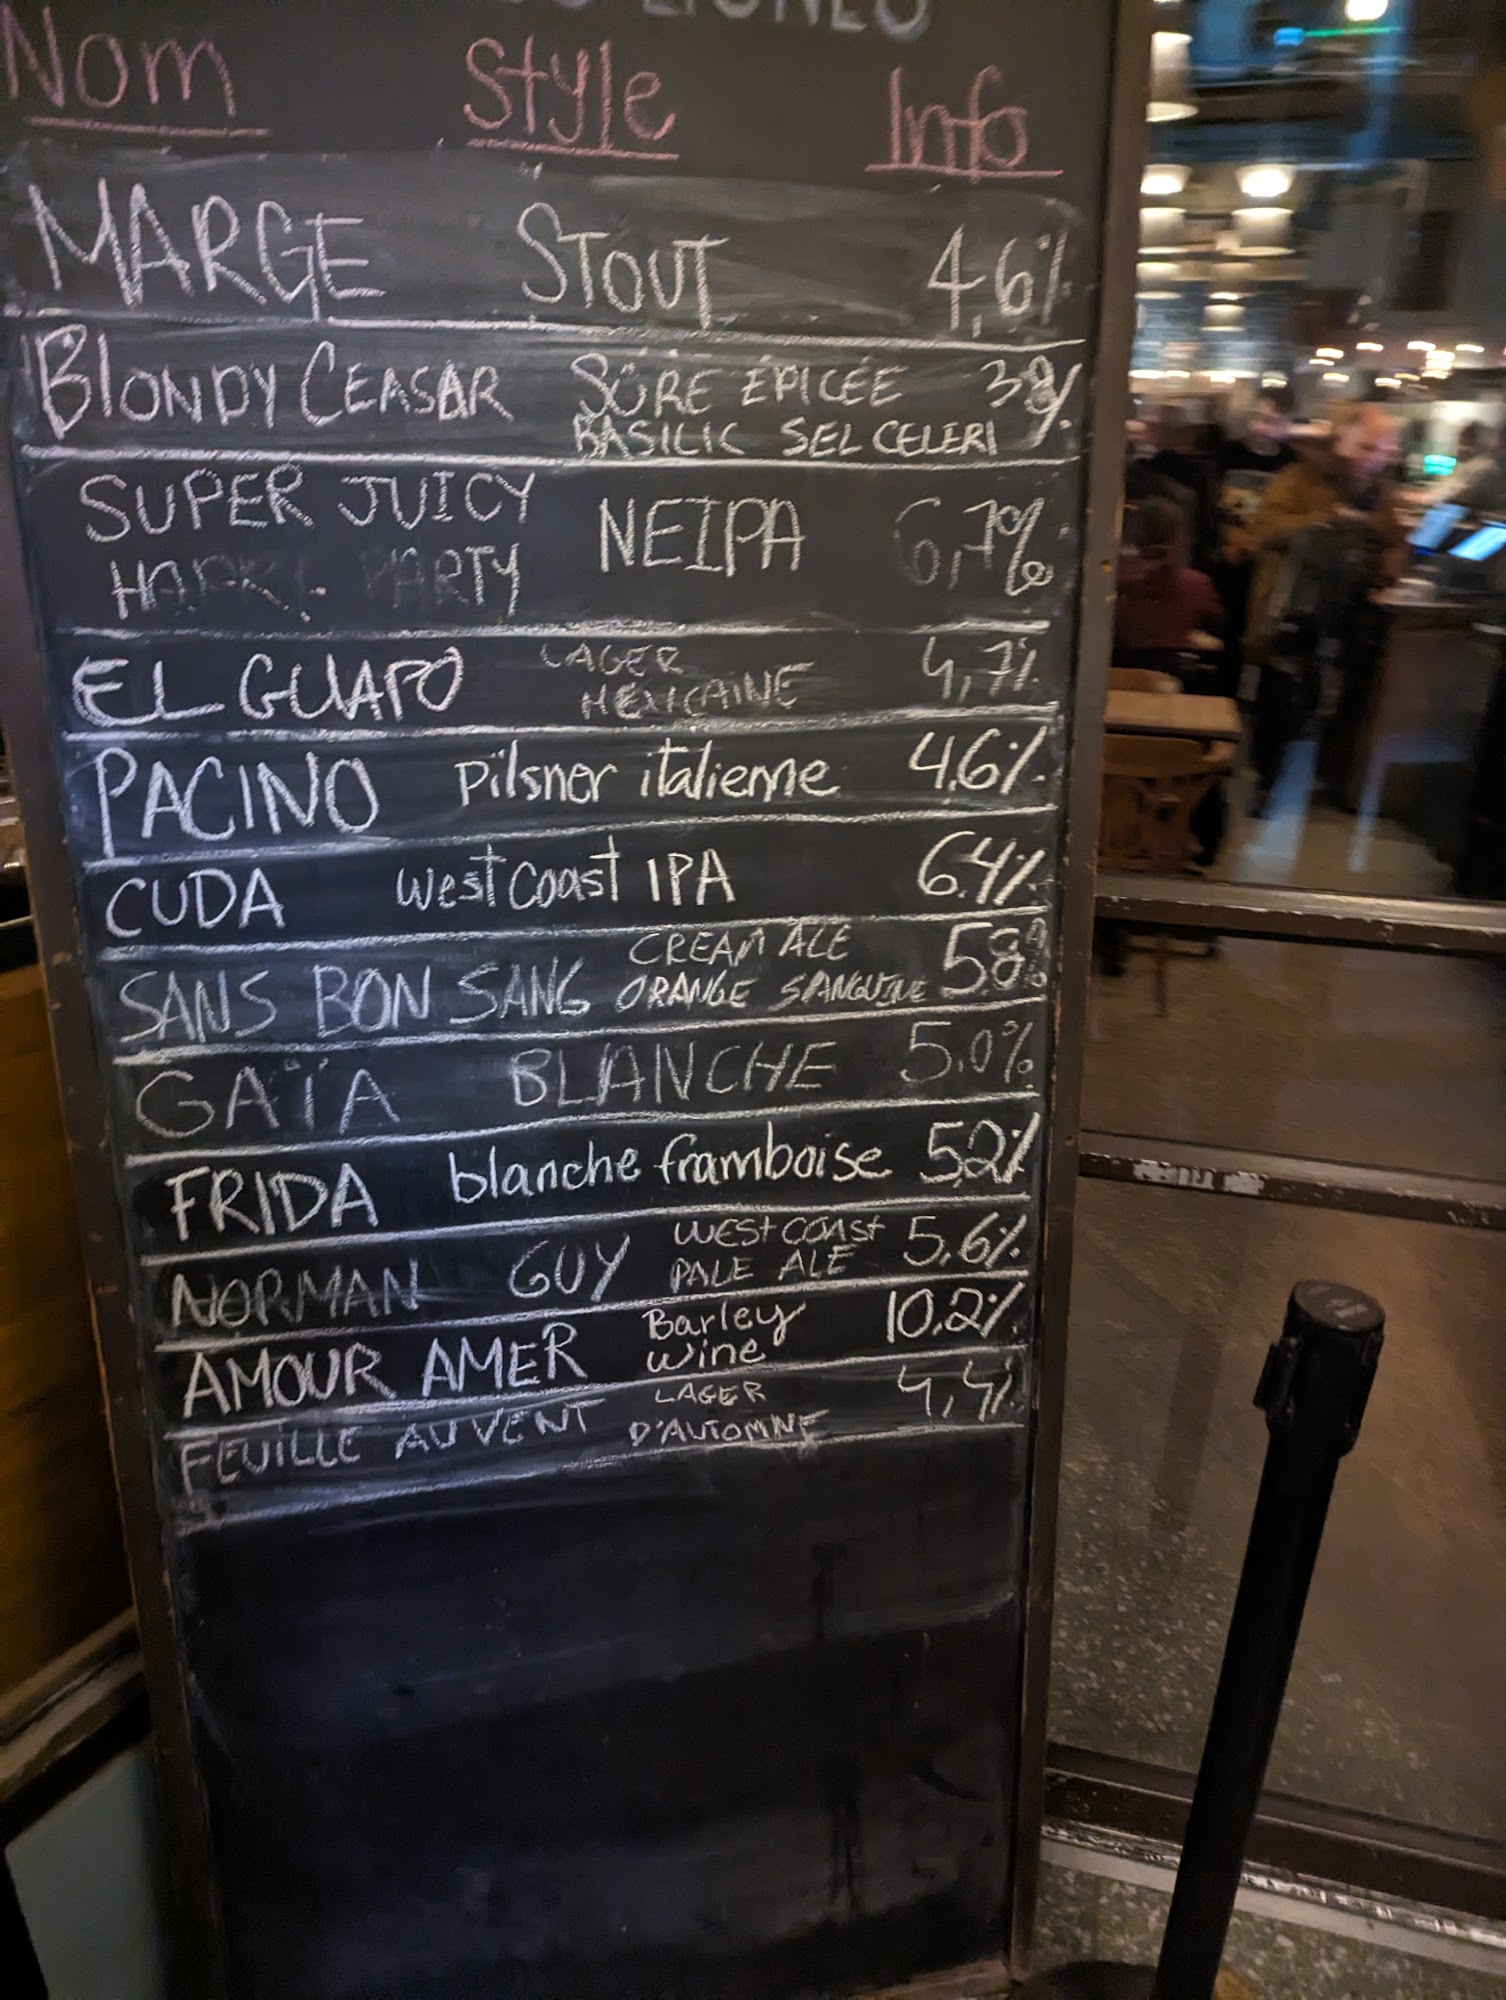 Nom Style Info
MARGE STOUT 4,6%
BLONDY CEASAR SÛRE ÉPICÉE
BASILIC SEL CELERI
SUPER JUICY NEIPA 6,7%
PARTY
EL GUAPO LAGER 4,7%
MEXICAINE
PACINO Pilsner italienne 4.6%
CUDA west coast IPA 6.4%
CREAM ALE
SANS BON SANG ORANGE SANGUINE 5.8%
GAÏA BLANCHE 5.0%
FRIDA blanche framboise 5,2%
NORMAN GUY WEST COAST 5,6%
PALE ALE
AMOUR AMER Barley 10.2%
wine
FEUILLE AU VENT LAGER 4,4%
D'AUTOMNE